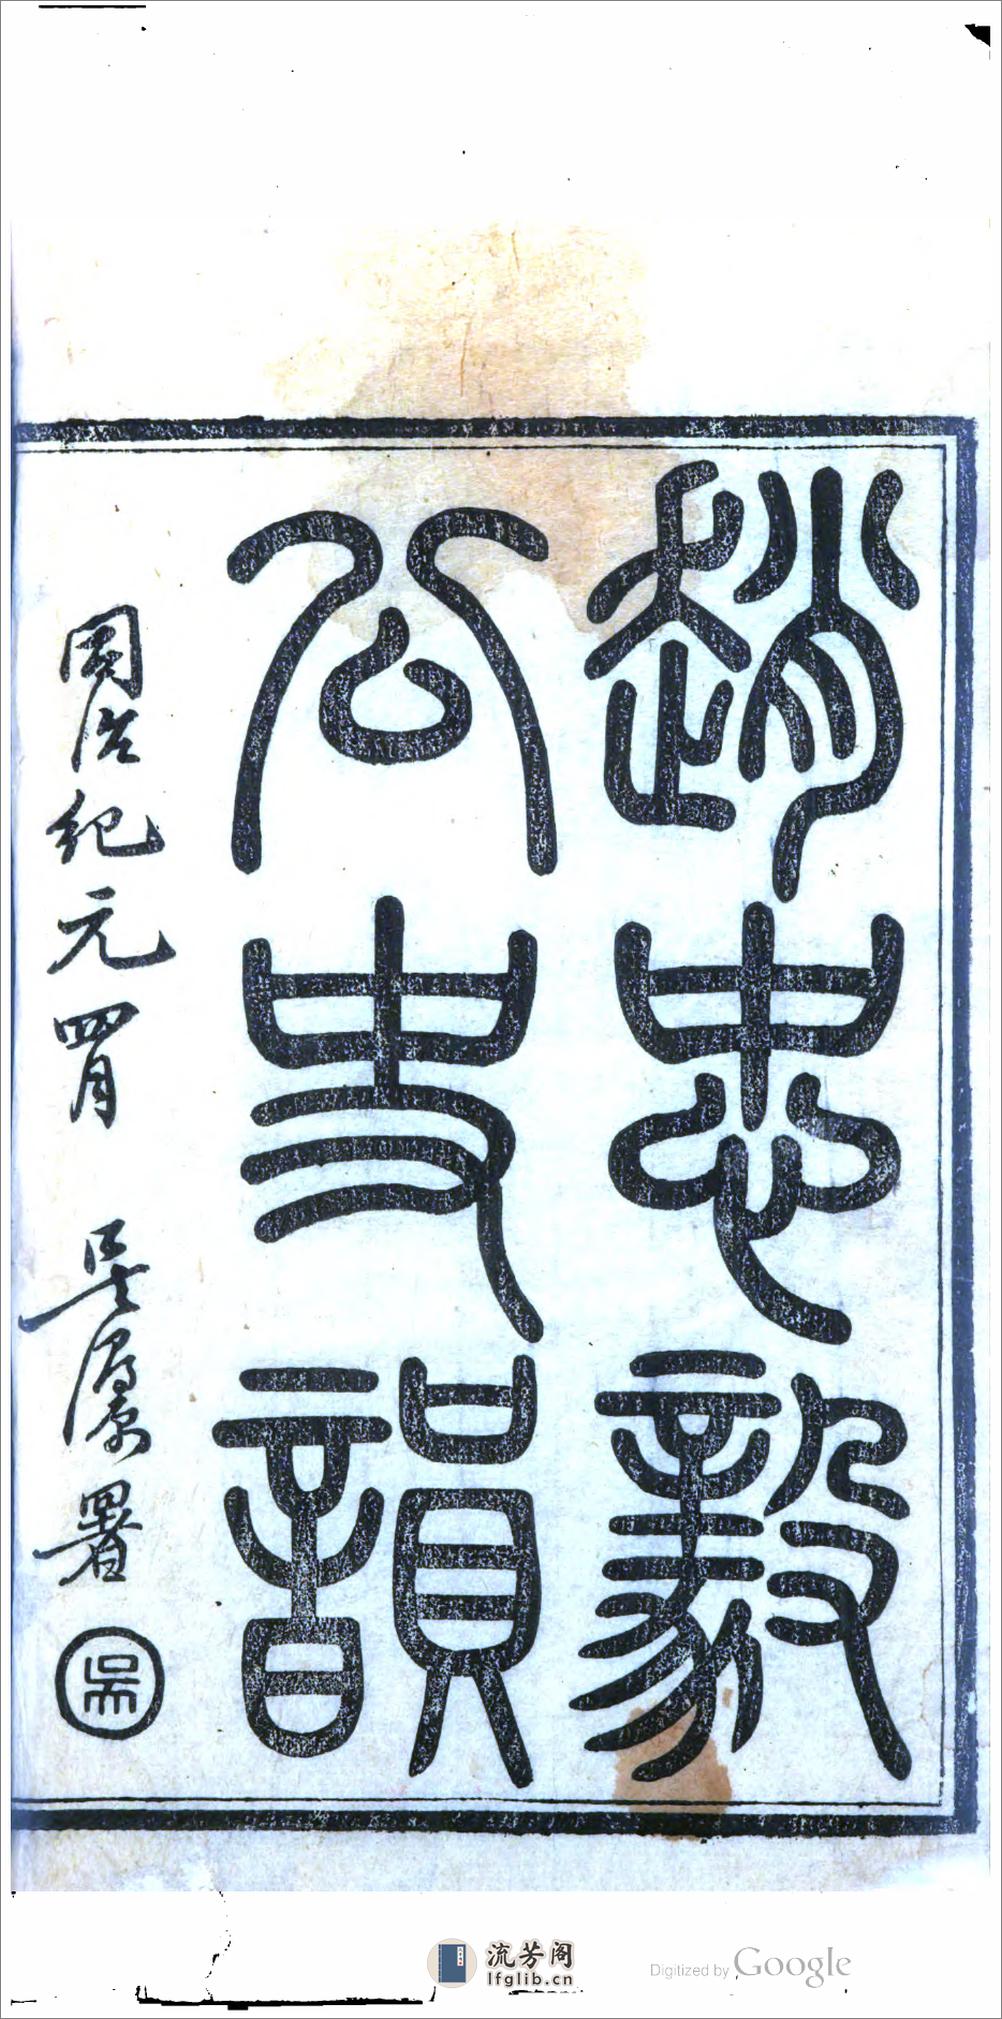 趙忠毅
公史韻
同治紀元四月 吳 署
吳
流芳阁
lfglib.cn
Digitized by Google